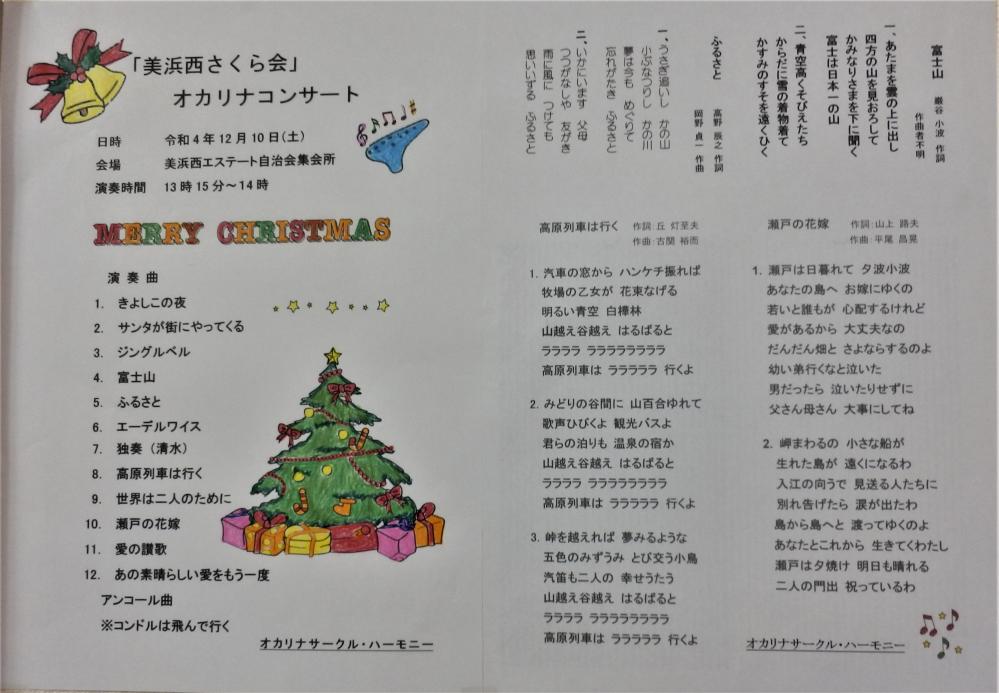 「美浜西さくら会」
オカリナコンサート
日時 令和4年12月10日(土)
会場 美浜西エステート自治会集会所
演奏時間 13時15分～14時
MERRY CHRISTMAS
演奏曲
1. きよしこの夜
2. サンタが街にやってくる
3. ジングルベル
4. 富士山
5. ふるさと
6. エーデルワイス
7. 独奏（清水）
8. 高原列車は行く
9. 世界は二人のために
10. 瀬戸の花嫁
11. 愛の讃歌
12. あの素晴らしい愛をもう一度
アンコール曲
※コンドルは飛んで行く
オカリナサークル・ハーモニー
富士山 巌谷 小波 作詞
作曲者不明
一、あたまを雲の上に出し
四方の山を見おろして
かみなりさまを下に聞く
富士は日本一の山
二、青空高くそびえたち
からだに雪の着物着て
かすみのすそを遠くひく
ふるさと 高野 辰之 作詞
岡野 貞一 作曲
一、うさぎ追いし かの山
小ぶなつりし かの川
夢は今も めぐりて
忘れがたき ふるさと
二、いかにいます 父母
つつがなしや 友がき
雨に風に つけても
思いいずる ふるさと
高原列車は行く 作詞:丘 灯至夫
作曲:古関 裕而
1. 汽車の窓から ハンケチ振れば
牧場の乙女が 花束なげる
明るい青空 白樺林
山越え谷越え はるばると
ララララ ララララララララ
高原列車は ラララララ 行くよ
2. みどりの谷間に 山百合ゆれて
歌声ひびくよ 観光バスよ
君らの泊りも 温泉の宿か
山越え谷越え はるばると
ララララ ララララララララ
高原列車は ラララララ 行くよ
3. 峠を越えれば 夢みるような
五色のみずうみ とび交う小鳥
汽笛も二人の 幸せうたう
山越え谷越え はるばると
ララララ ララララララララ
高原列車は ラララララ 行くよ
瀬戸の花嫁 作詞:山上 路夫
作曲:平尾 昌晃
1. 瀬戸は日暮れて 夕波小波
あなたの島へ お嫁にゆくの
若いと誰もが 心配するけれど
愛があるから 大丈夫なの
だんだん畑と さよならするのよ
幼い弟行くなと泣いた
男だったら 泣いたりせずに
父さん母さん 大事にしてね
2. 岬まわるの 小さな船が
生れた島が 遠くになるわ
入江の向うで 見送る人たちに
別れ告げたら 涙が出たわ
島から島へと 渡ってゆくのよ
あなたとこれから 生きてくわたし
瀬戸は夕焼け 明日も晴れる
二人の門出 祝っているわ
オカリナサークル・ハーモニー